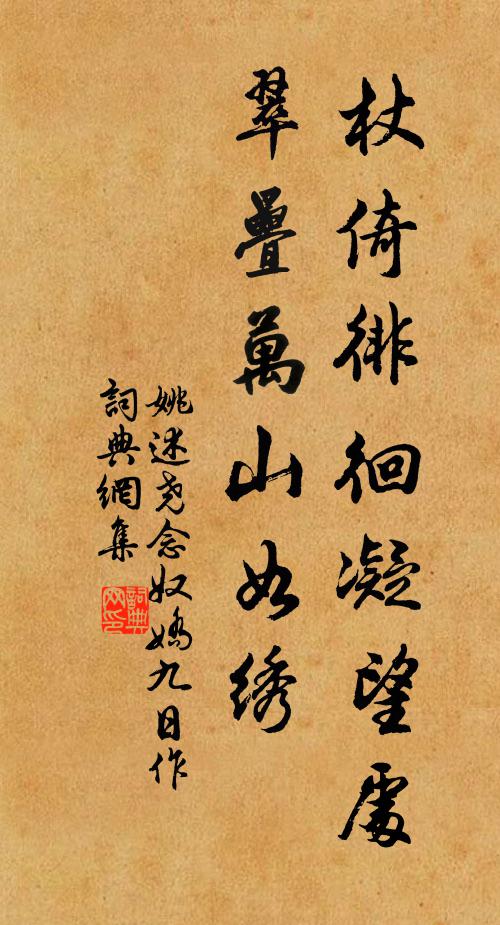 杖倚徘徊凝望處
翠疊萬山如綉
姚述尧念奴嬌九日作
詞典網集
詞典
网印